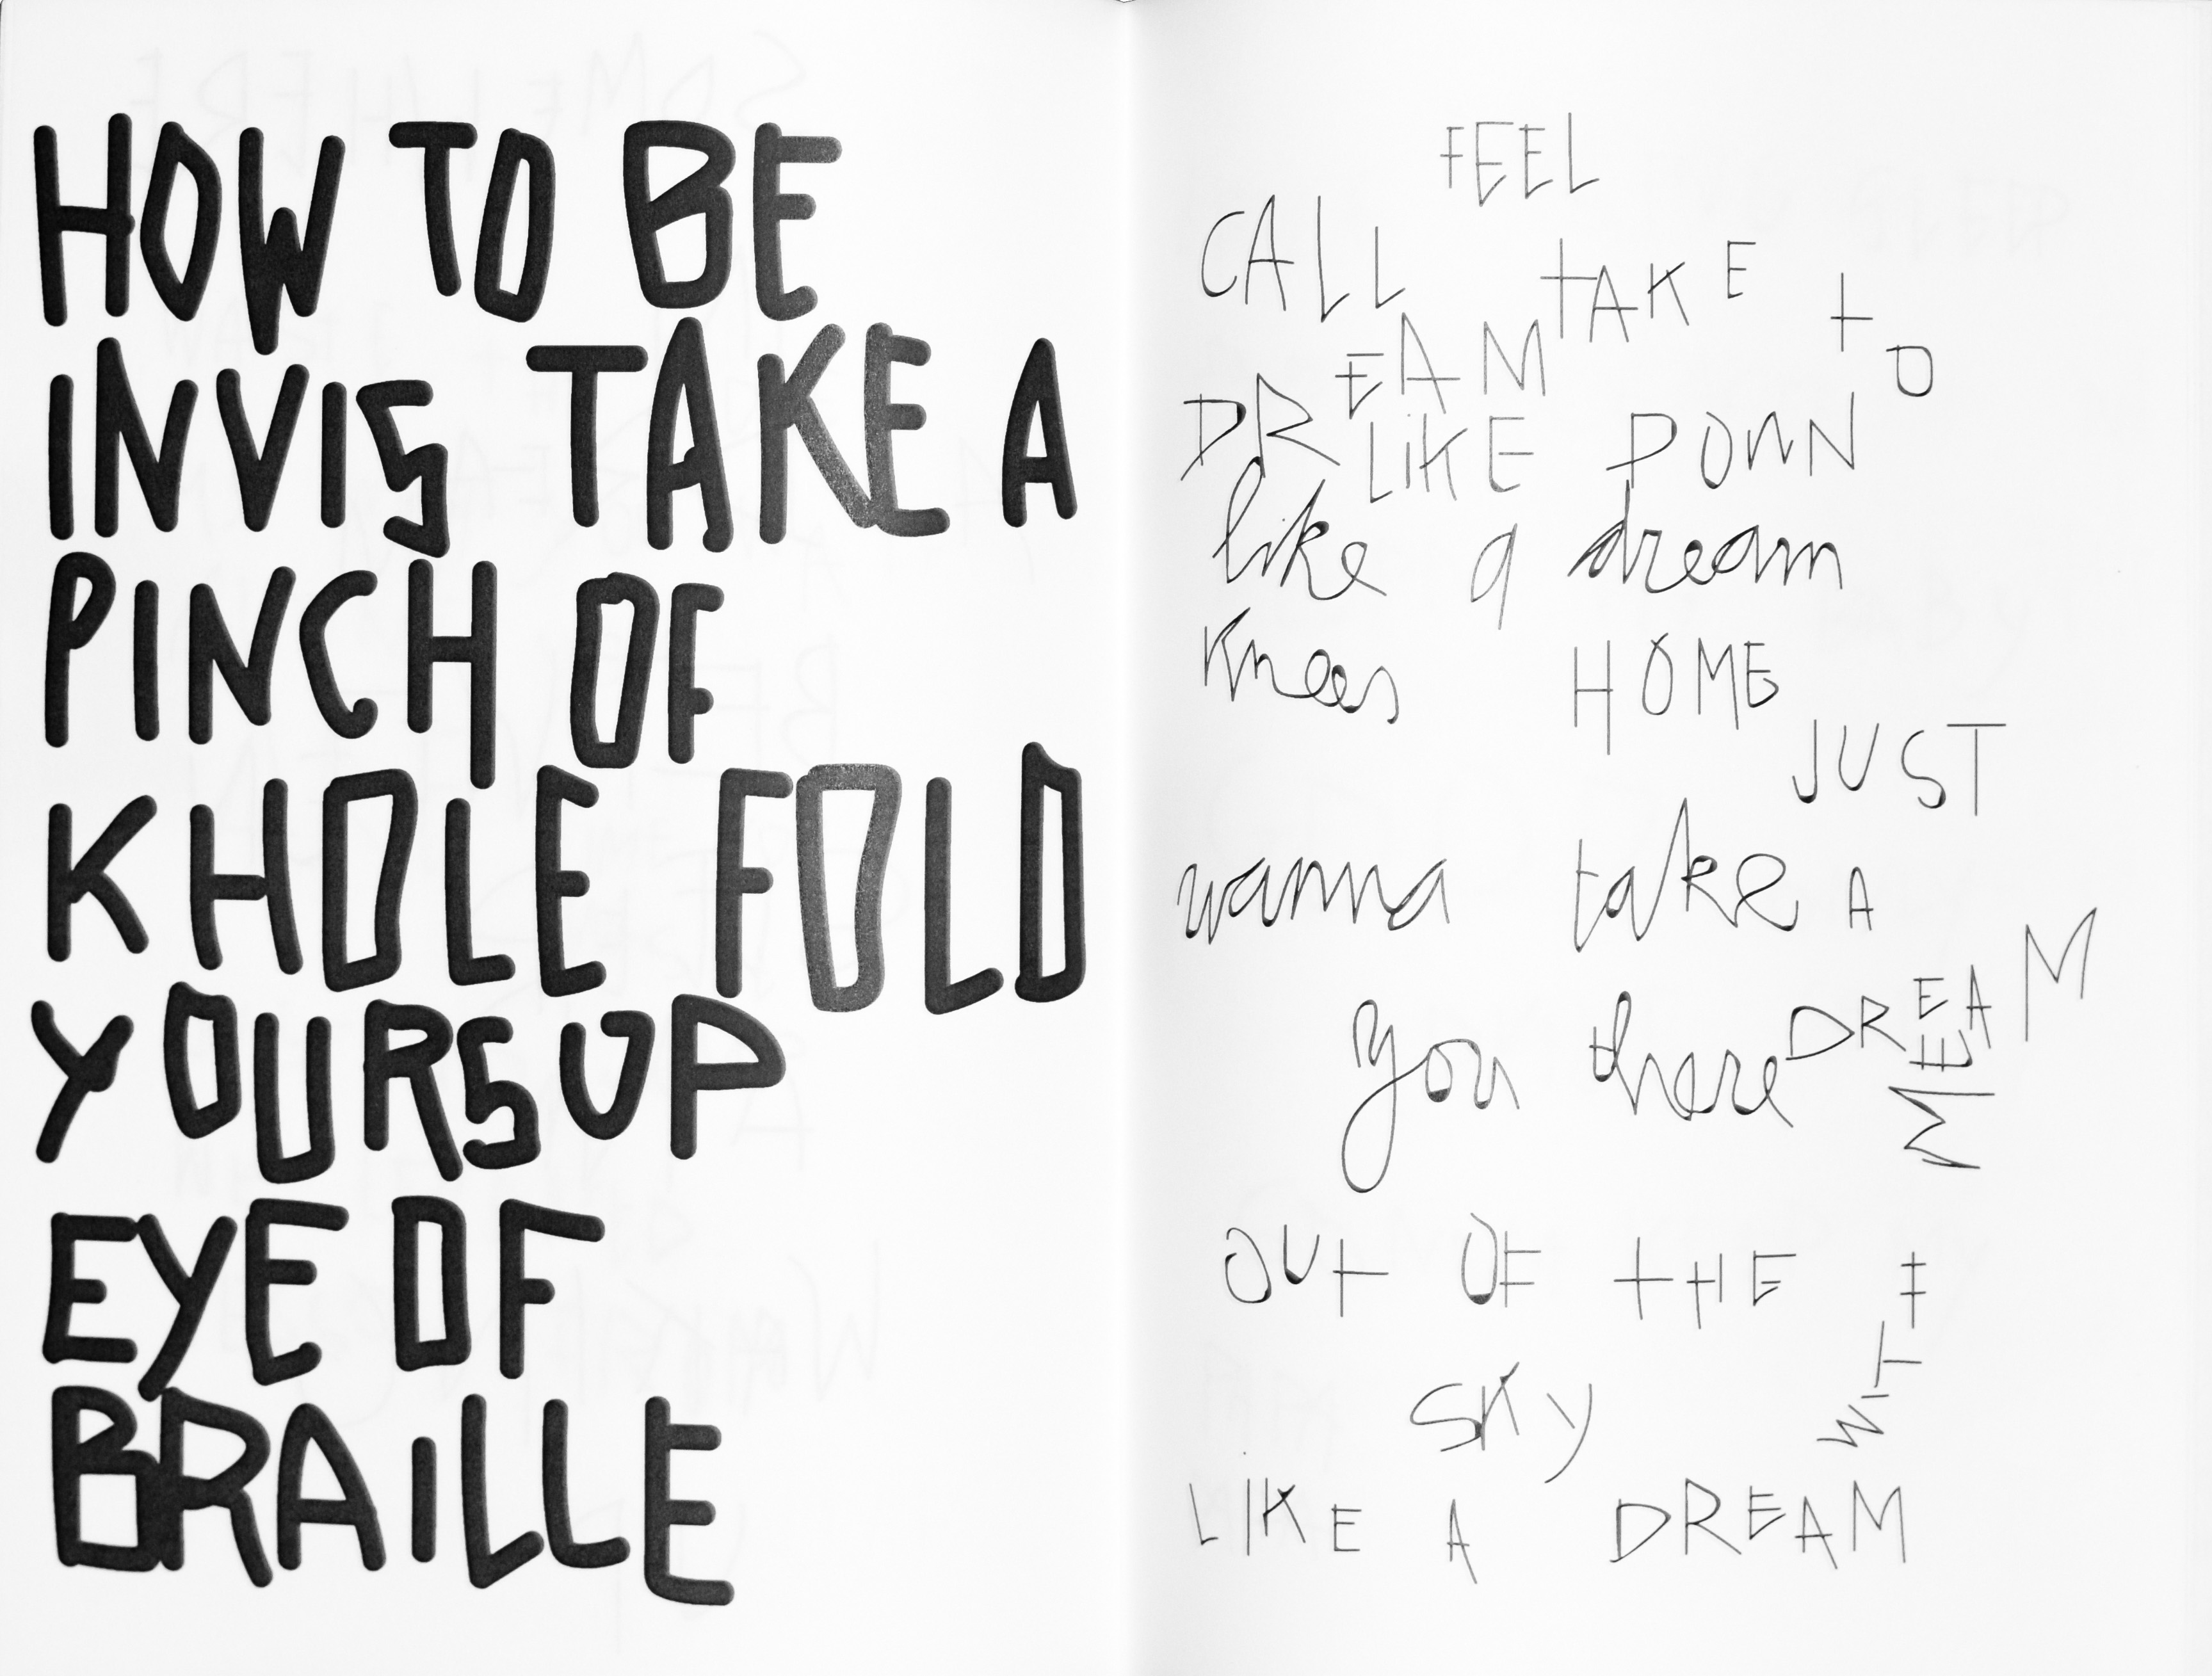 HOW TO BE
INVIS TAKE A
PINCH OF
K HOLE FOLD
YOURS UP
EYE OF
BRAiLLE
FEEL
CALL
tAKE tO
DREAM
LiKE DOWN
like a dream
Knees HOME
JUST
wanna take A
DREAM
you there
ME
OUt OF tHE
SKY
WITH
LIKE A DREAM